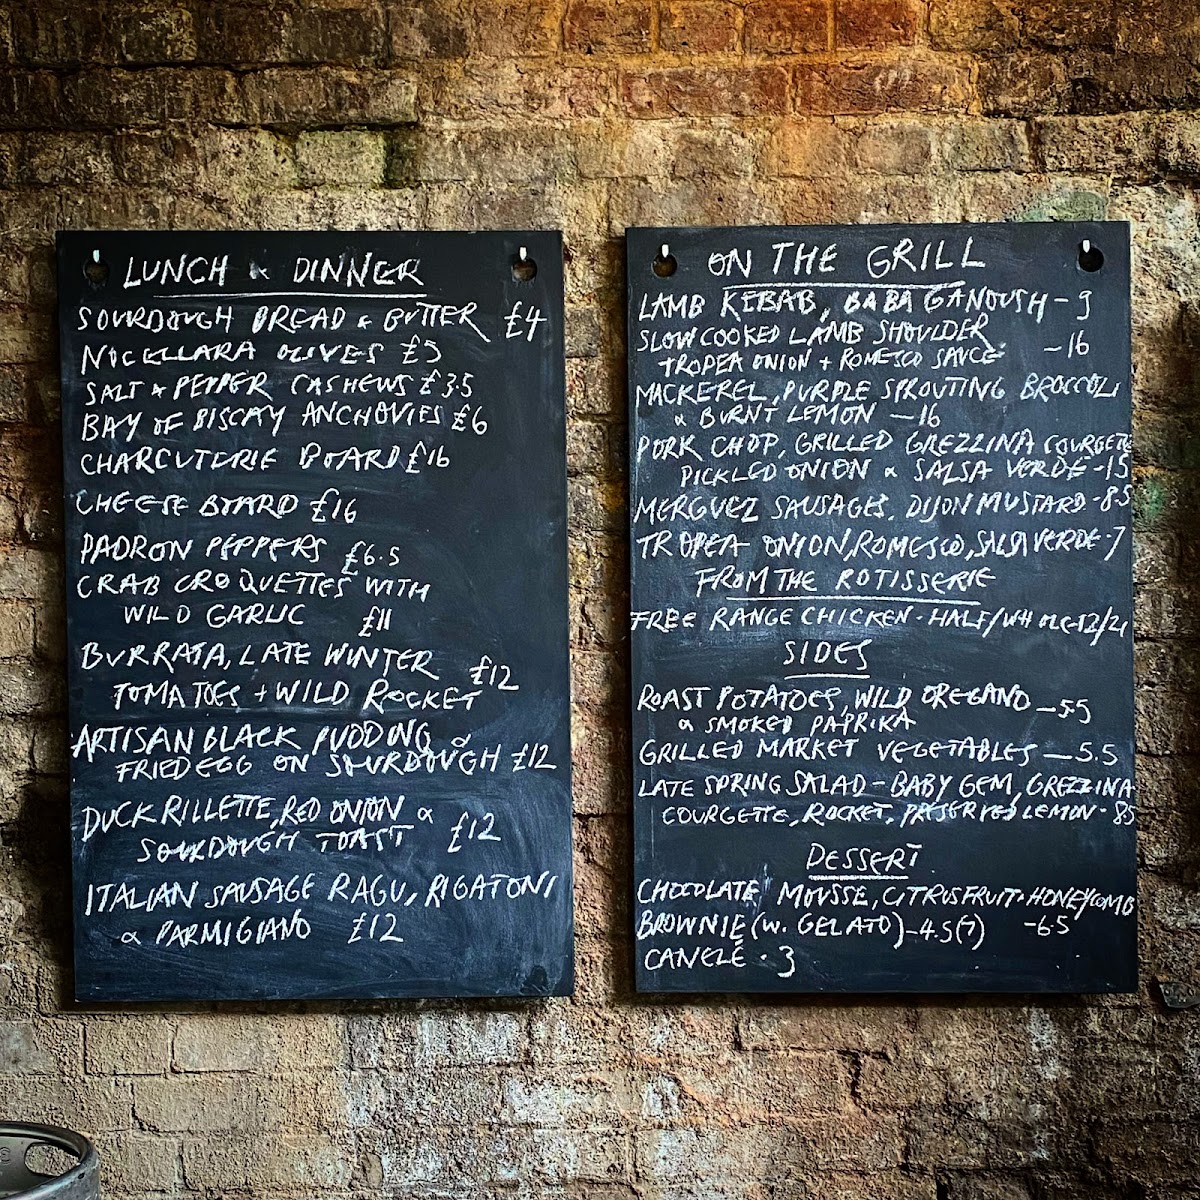 LUNCH & DINNER
SOURDOUGH BREAD & BUTTER £4
NOCELLARA OLIVES £5
SALT & PEPPER CASHEWS £3.5
BAY OF BISCAY ANCHOVIES £6
CHARCUTERIE BOARD £16
CHEESE BOARD £16
PADRON PEPPERS £6.5
CRAB CROQUETTES WITH
WILD GARLIC £11
BURRATA, LATE WINTER £12
TOMATOES + WILD ROCKET
ARTISAN BLACK PUDDING &
FRIED EGG ON SOURDOUGH £12
DUCK RILLETTE, RED ONION &
SOURDOUGH TOAST £12
ITALIAN SAUSAGE RAGU, RIGATONI
& PARMIGIANO £12
ON THE GRILL
LAMB KEBAB, BABA GANOUSH - 9
SLOW COOKED LAMB SHOULDER
TROPEA ONION + ROMESCO SAUCE - 16
MACKEREL, PURPLE SPROUTING BROCCOLI
& BURNT LEMON - 16
PORK CHOP, GRILLED GREZZINA COURGETTE
PICKLED ONION & SALSA VERDE - 15
MERGUEZ SAUSAGES, DIJON MUSTARD - 8.5
TROPEA ONION, ROMESCO, SALSA VERDE - 7
FROM THE ROTISSERIE
FREE RANGE CHICKEN - HALF/WHOLE - 12/21
SIDES
ROAST POTATOES, WILD OREGANO - 5.5
& SMOKED PAPRIKA
GRILLED MARKET VEGETABLES - 5.5
LATE SPRING SALAD - BABY GEM, GREZZINA
COURGETTE, ROCKET, PRESERVED LEMON - 8.5
DESSERT
CHOCOLATE MOUSSE, CITRUS FRUIT + HONEYCOMB
BROWNIE (W. GELATO) - 4.5 (7) - 6.5
CANELÉ . 3